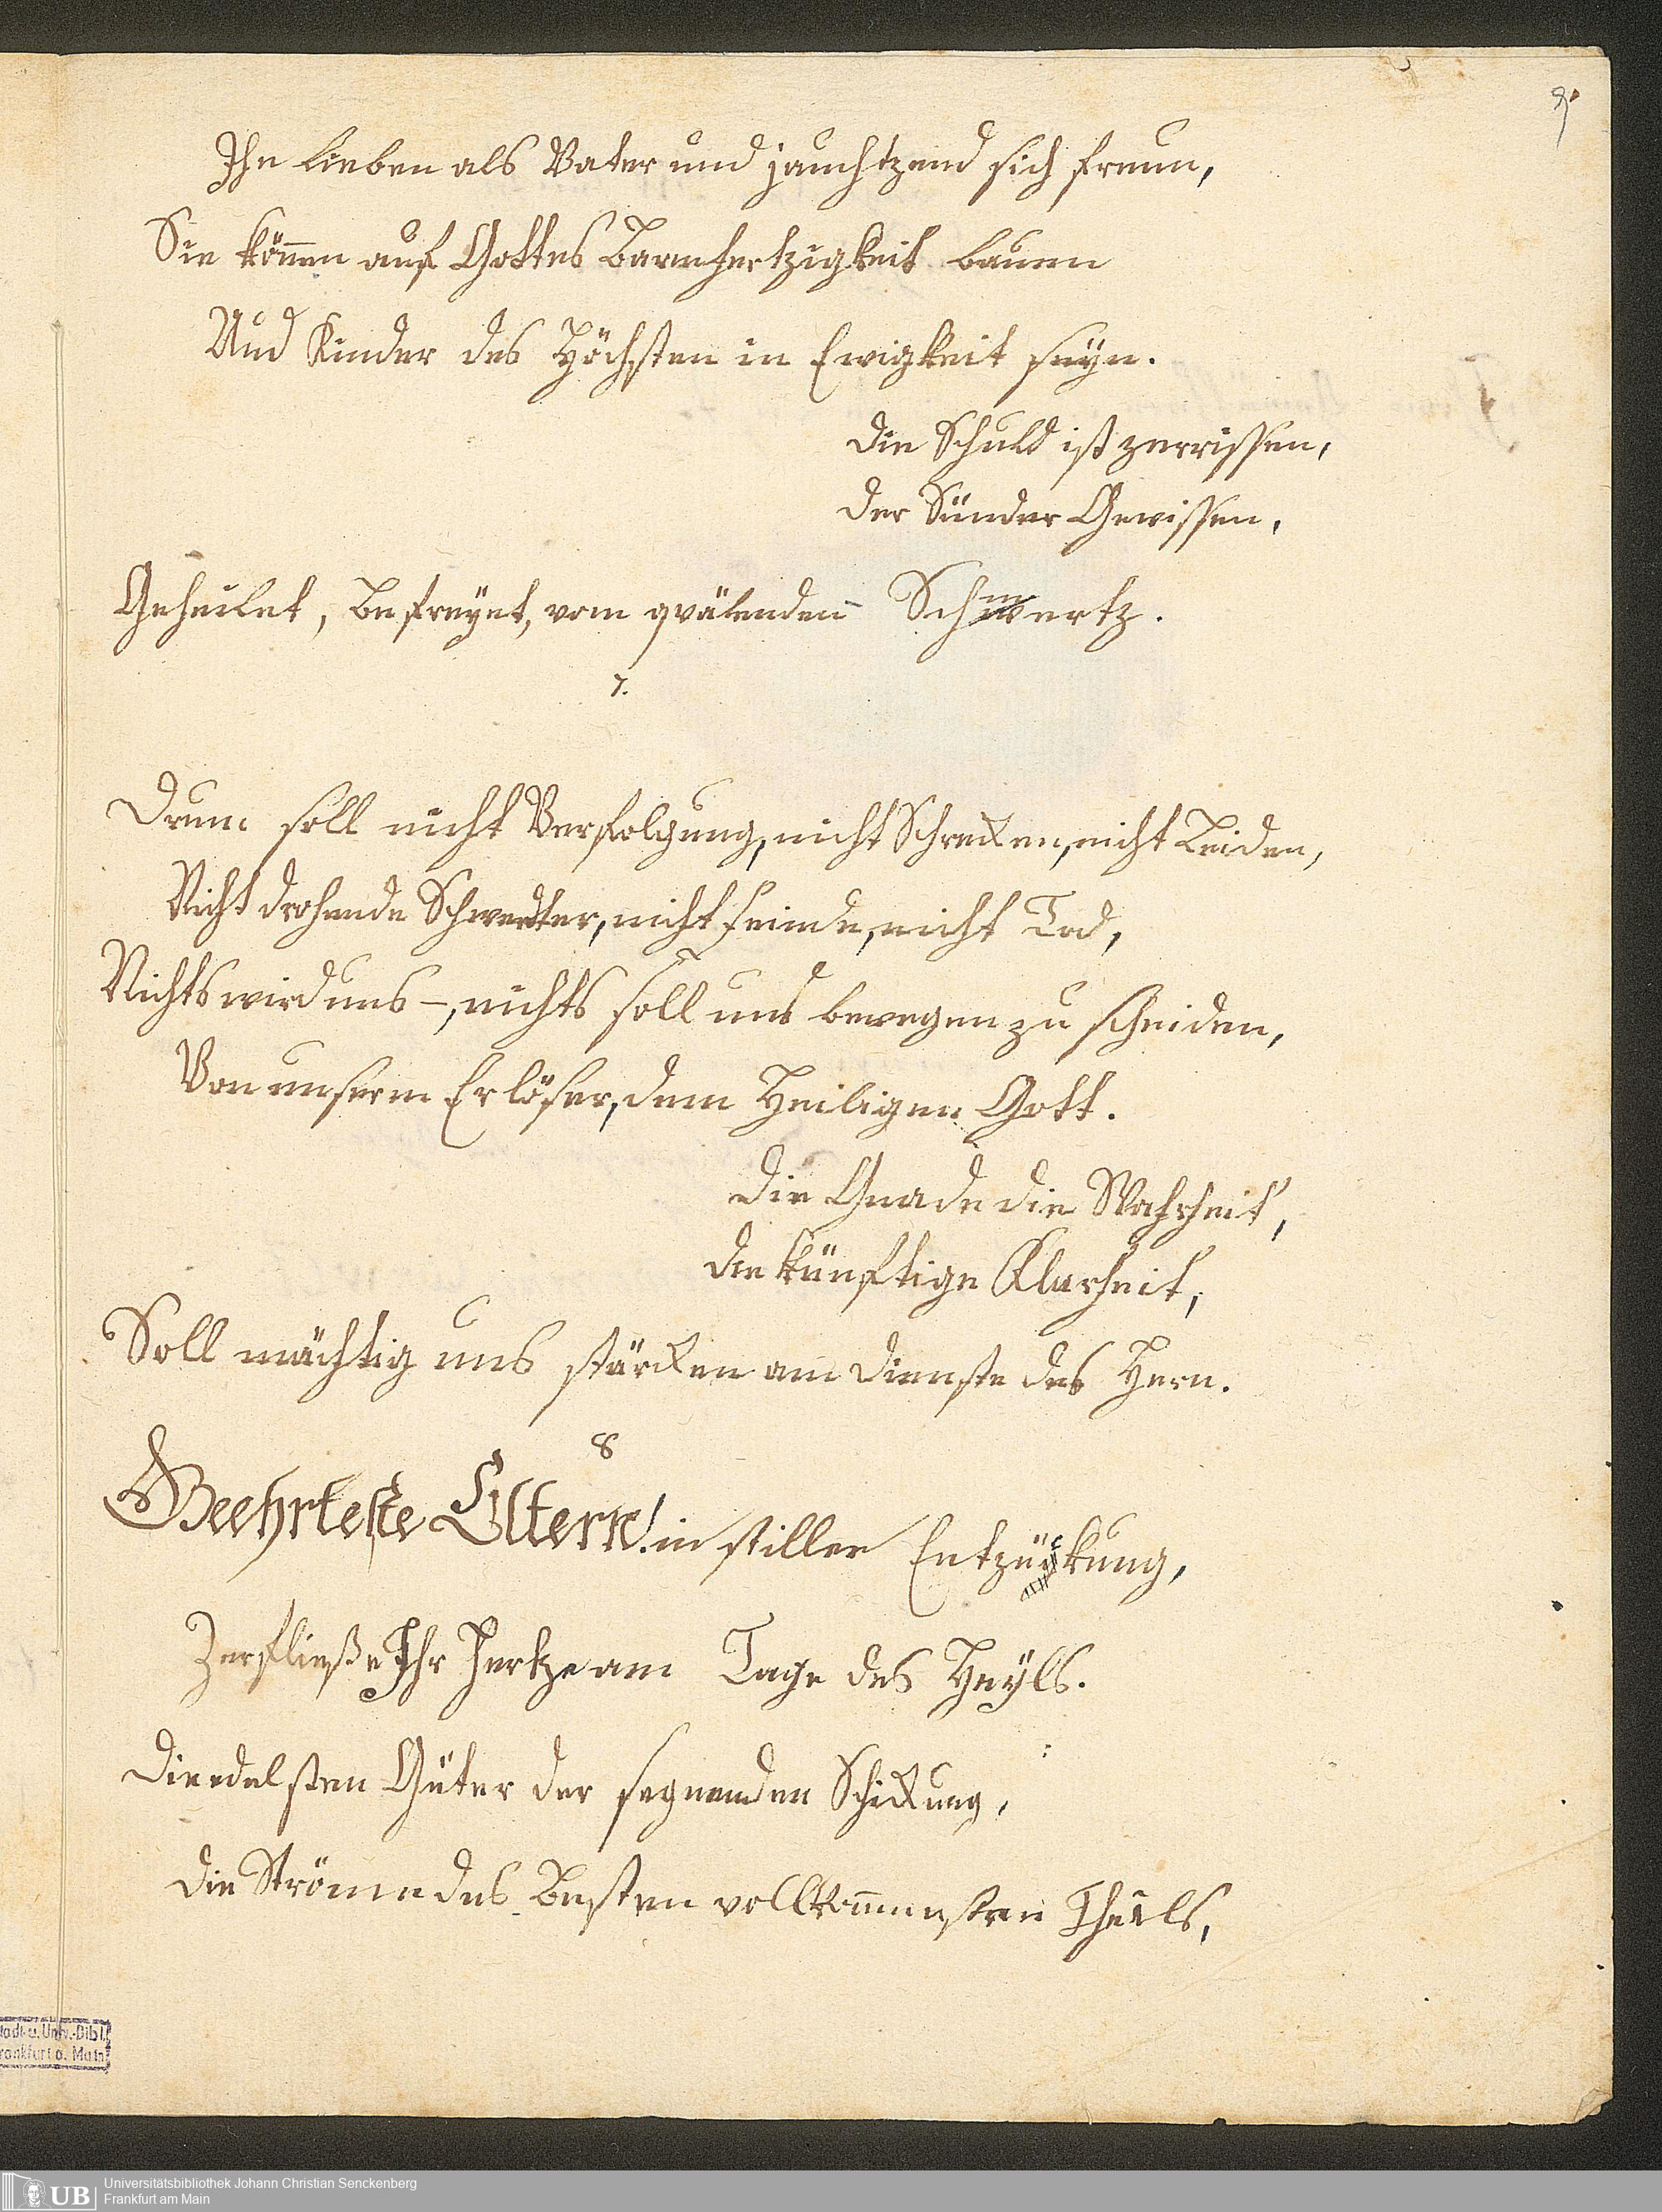 9.
Ihn lieben als Vater und jauchtzend sich freun,
Sie können auf Gottes Barmhertzigkeit bauen
Und Kinder des Höchsten in Ewigkeit seyn.
Die Schuld ist zerrissen,
Der Sünder Gewissen,
Geheilet, Befreyet, vom qvälenden Schmertz.
7.
Drum soll nicht Verfolgung, nicht Schrecken, nicht Leiden,
Nicht drohende Schwerdter, nicht Feinde, nicht Tod,
Nichts wird uns –, nichts soll uns bewegen zu scheiden,
Von unserm Erlöser, dem Heiligen Gott.
Die Gnade die Wahrheit,
Die künftige Klarheit,
Soll mächtig uns stärcken am Dienste des Hern.
8
Geehrteste Eltern! in stiller Entzückung,
Zerfließe Ihr Hertze am Tage des Heyls.
Die edelsten Güter der segnenden Schickung,
Die Ströme des Besten vollkommensten Theils,
Stadt-u. Univ.-Bibl.
Frankfurt a. Main
UB Universitätsbibliothek Johann Christian Senckenberg
Frankfurt am Main